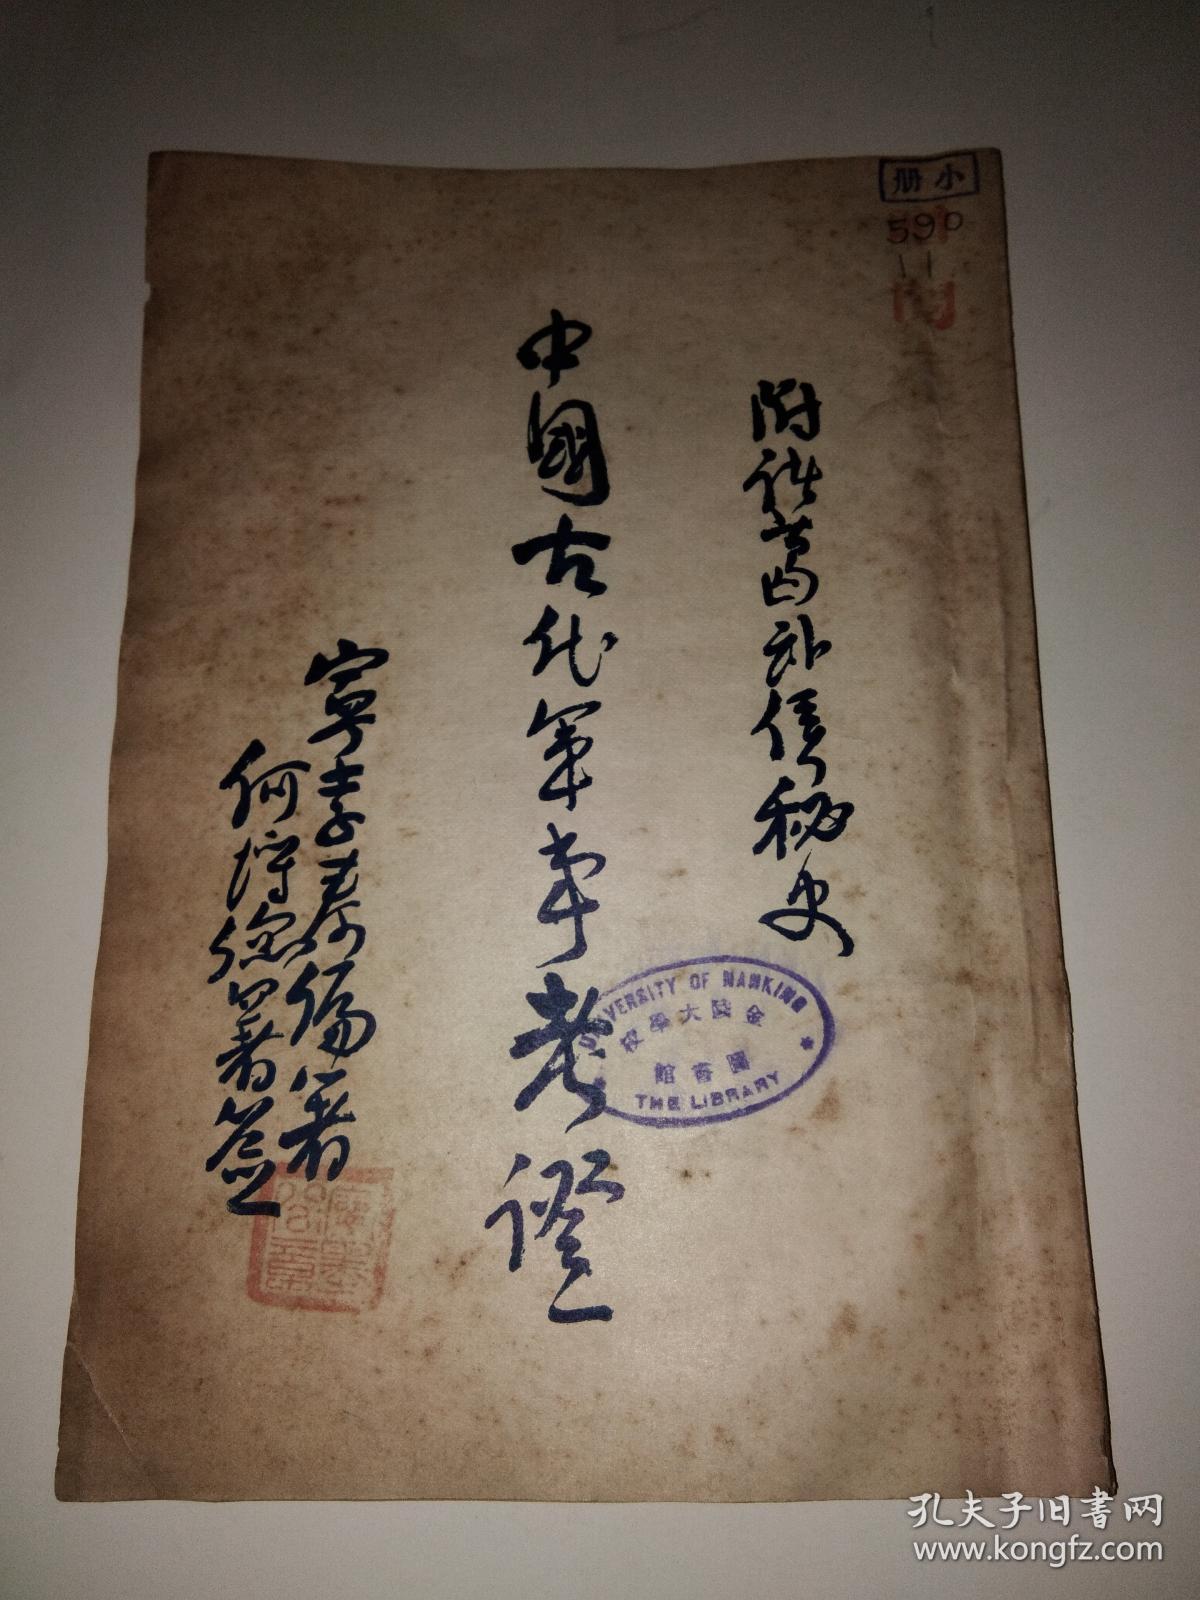 小册
590
11
附諸葛武侯秘史
中國古代軍事考證
寧李泰編著
何署簽
UNIVERSITY OF NANKING
金陵大學校
圖書館
THE LIBRARY
孔夫子旧书网
www.kongfz.com